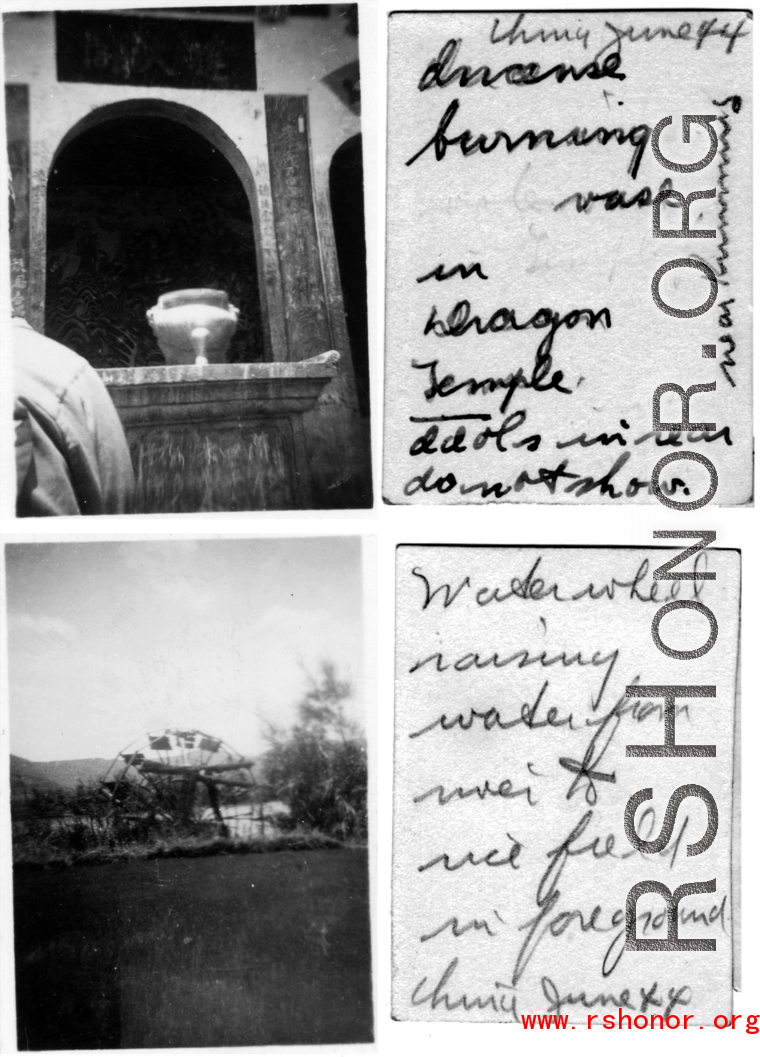 China June 44
Incense
burning
vase
in
Dragon
Temple.
Idols in rear
do not show.
near
Water wheel
raising
water from
river to
rice field
in foreground
China June 44
RSHONOR.ORG
www.rshonor.org